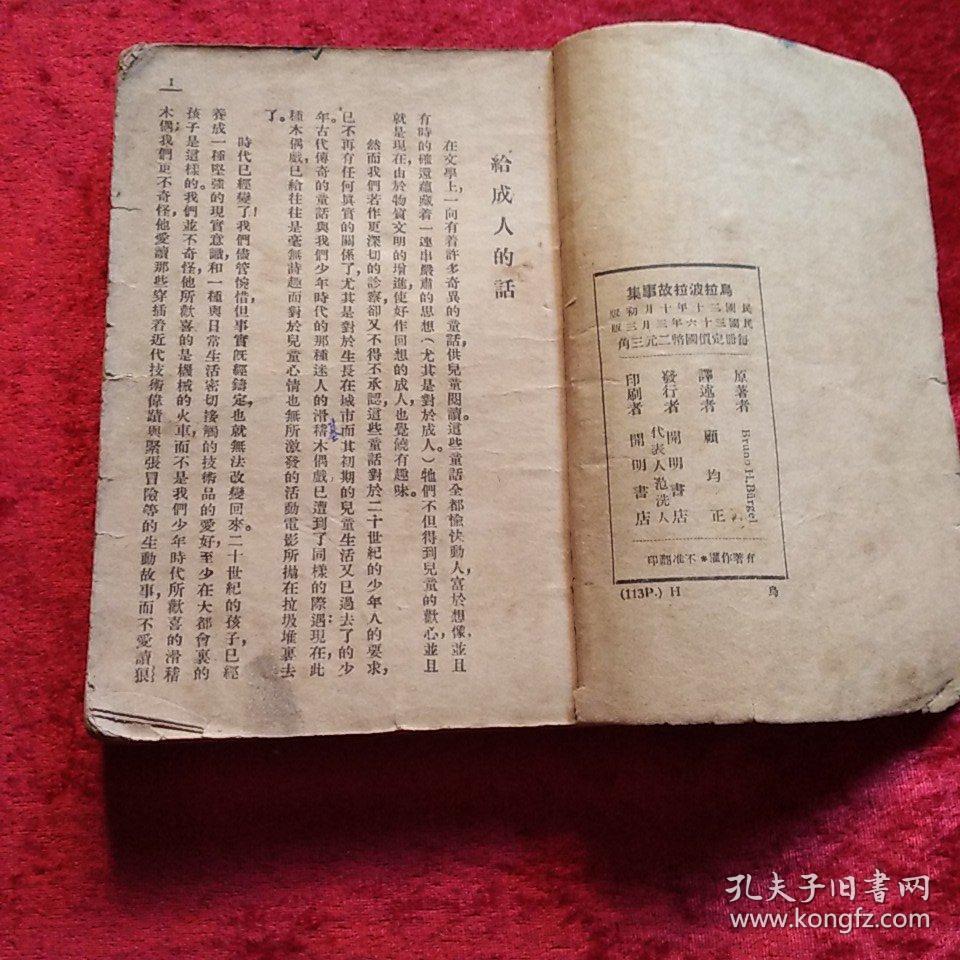 烏拉波拉故事集
民國三十年十月初版
民國三十六年三月三版
每冊定價國幣二元三角
原著者 Bruno H. Bürgel
譯述者 顧均正
發行者 開明書店
代表人范洗人
印刷者 開明書店
有著作權*不准翻印
(113P.) H
烏
給成人的話
在文學上,一向有着許多奇異的童話,供兒童閱讀。這些童話全都愉快動人,富於想像,並且
有時的確還蘊藏着一連串嚴肅的思想(尤其是對於成人。)牠們不但得到兒童的歡心,並且
就是現在,由於物質文明的增進,使好作回想的成人,也覺饒有趣味。
然而我們若作更深切的診察,卻又不得不承認,這些童話對於二十世紀的少年人的要求,
已不再有任何眞實的關係了,尤其是對於生長在城市而其初期的兒童生活又已過去了的少
年。古代傳奇的童話與我們少年時代的那種迷人的滑稽木偶戲已遭到了同樣的際遇;現在,此
種木偶戲已給往往是毫無詩趣而對於兒童心情也無所激發的活動電影所擋在垃圾堆裏去
了。
時代已經變了!我們儘管惋惜,但事實旣經鑄定,也就無法改變回來。二十世紀的孩子,已經
養成一種堅強的現實意識,和一種與日常生活密切接觸的技術品的愛好;至少在大都會裏的
孩子是這樣的。我們並不奇怪他所歡喜的是機械的火車,而不是我們少年時代所歡喜的滑稽
木偶;我們更不奇怪,他愛讀那些穿插着近代技術偉蹟與緊張冒險等的生動故事,而不愛讀狼
1
孔夫子旧書网
www.kongfz.com